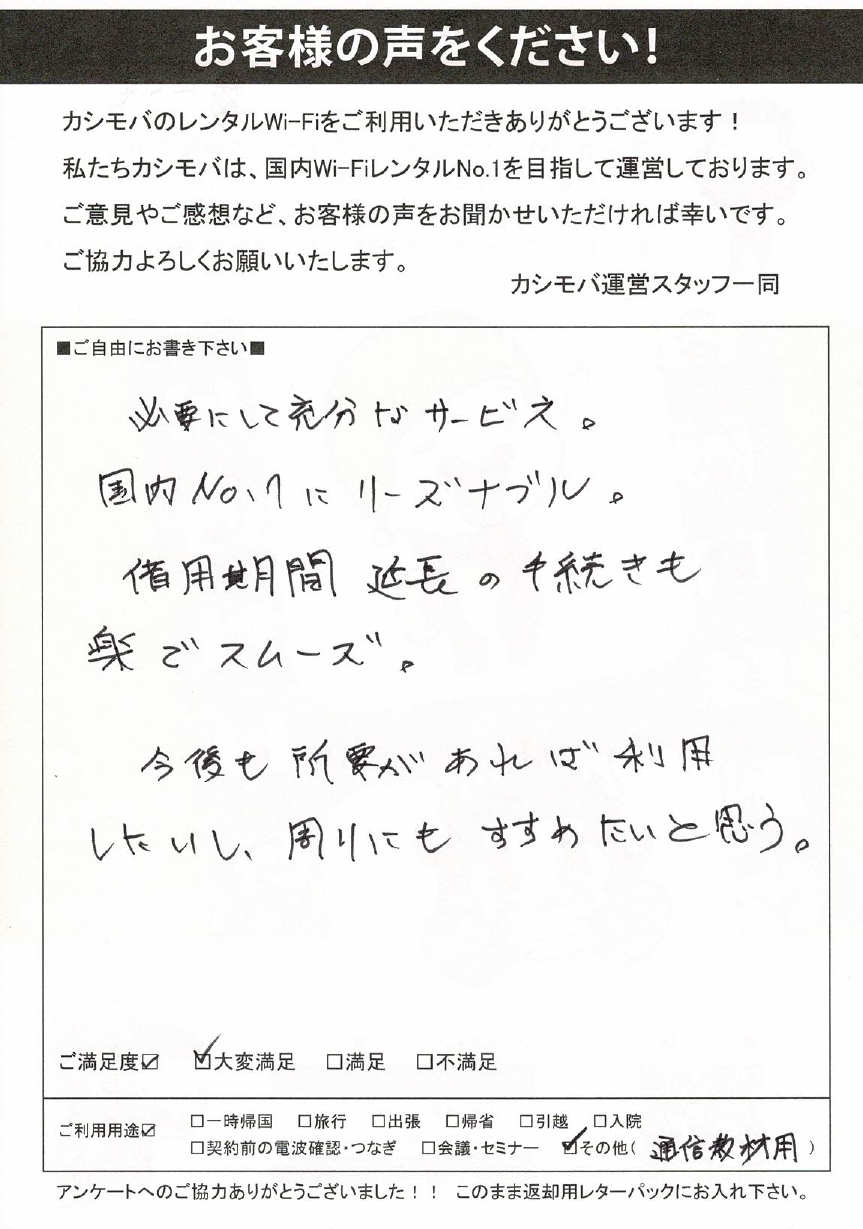 お客様の声をください!
カシモバのレンタルWi-Fiをご利用いただきありがとうございます！
私たちカシモバは、国内Wi-FiレンタルNo.1を目指して運営しております。
ご意見やご感想など、お客様の声をお聞かせいただければ幸いです。
ご協力よろしくお願いいたします。
カシモバ運営スタッフ一同
■ご自由にお書き下さい■
必要にして充分なサービス。
国内No.1にリーズナブル。
借用期間延長の手続きも
楽でスムーズ。
今後も所要があれば利用
したいし、周りにもすすめたいと思う。
ご満足度☑ ☑大変満足 □満足 □不満足
ご利用用途☑ □一時帰国 □旅行 □出張 □帰省 □引越 □入院
□契約前の電波確認・つなぎ □会議・セミナー ☑その他( 通信教材用 )
アンケートへのご協力ありがとうございました！！ このまま返却用レターパックにお入れ下さい。